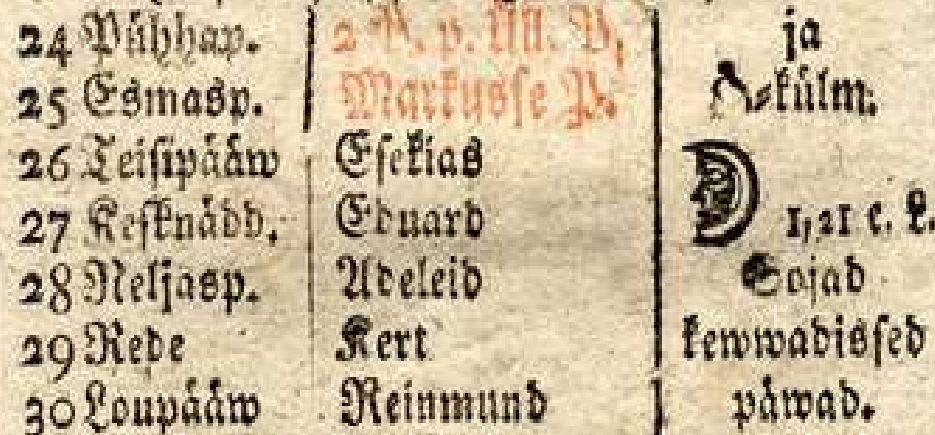 24 Pühhap. 2 P. p. Ül. P. ja
25 Esmasp. Markusse P. Ö-külm.
26 Teisipääw Esekias
27 Kesknädd. Eduard 1, 21 e. L.
28 Neljasp. Adeleid Sojad
29 Rede Kert kewwadissed
30 Loupääw Reinmund päwad.